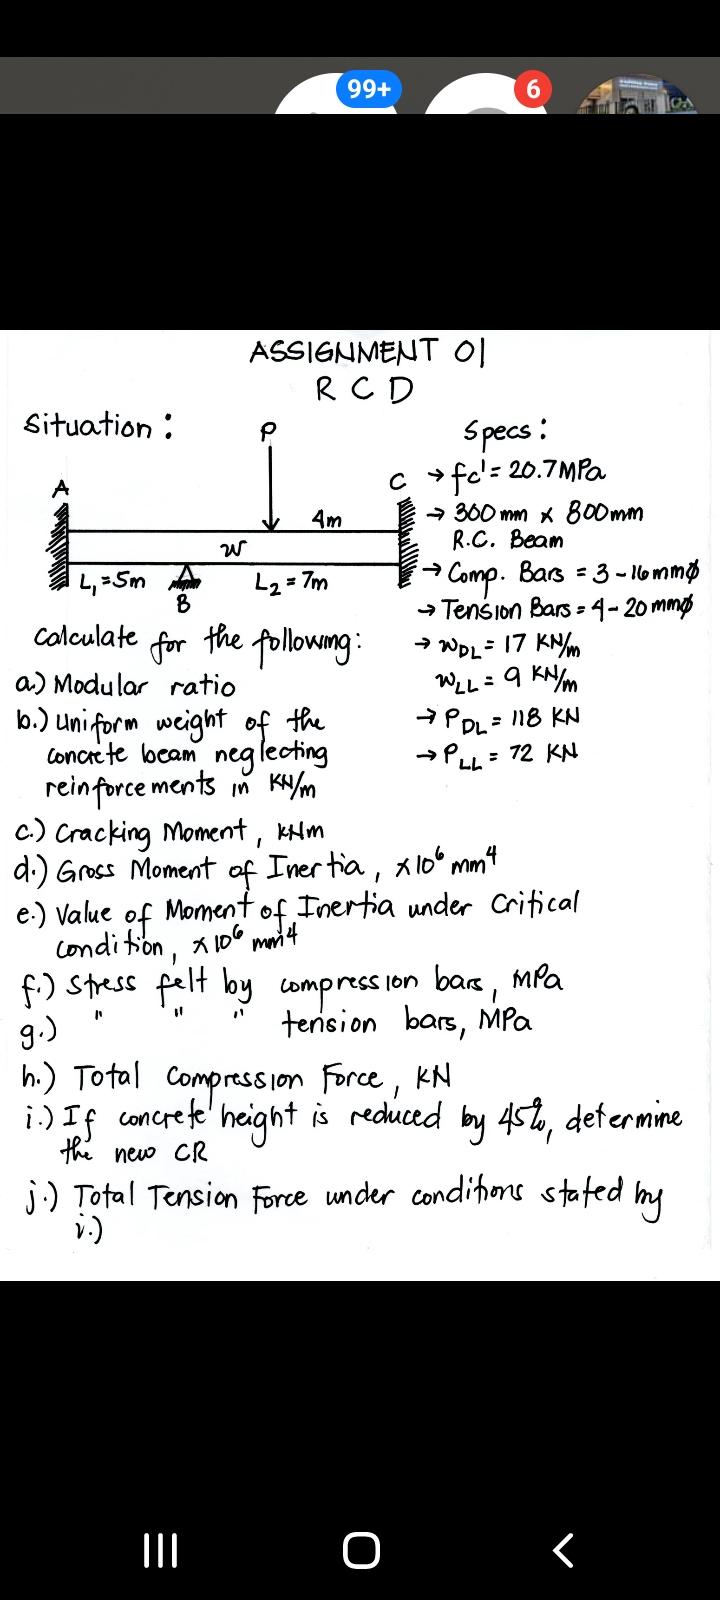 99+
6
ASSIGNMENT 01
R C D
Situation :
P
Specs :
A
C
→ fc' = 20.7 MPa
4m
→ 300 mm x 800mm
R.C. Beam
w
→ Comp. Bars = 3 - 16 mmφ
L₁ = 5m
L₂ = 7m
B
→ Tension Bars = 4 - 20 mmφ
Calculate for the following:
→ wDL = 17 KN/m
a.) Modular ratio
wLL = 9 KN/m
b.) Uniform weight of the
→ PDL = 118 KN
concrete beam neglecting
→ PLL = 72 KN
reinforcements in KN/m
c.) Cracking Moment, kNm
d.) Gross Moment of Inertia, x10⁶ mm⁴
e.) Value of Moment of Inertia under Critical
condition, x10⁶ mm⁴
f.) Stress felt by compression bars, MPa
g.) " " " tension bars, MPa
h.) Total Compression Force, kN
i.) If concrete height is reduced by 45%, determine
the new CR
j.) Total Tension Force under conditions stated by
i.)